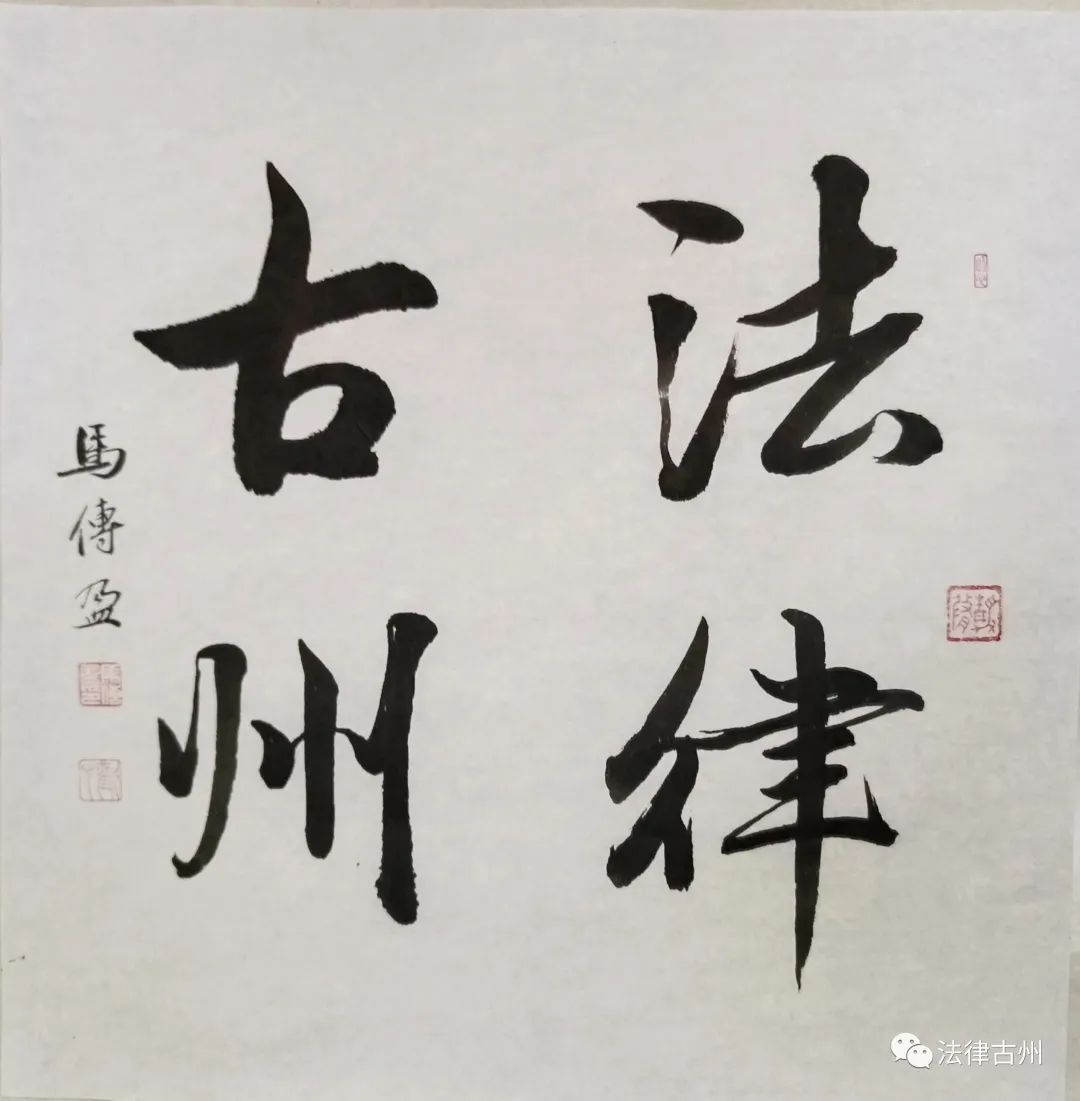 法律
古州
馬傳盈
法律古州